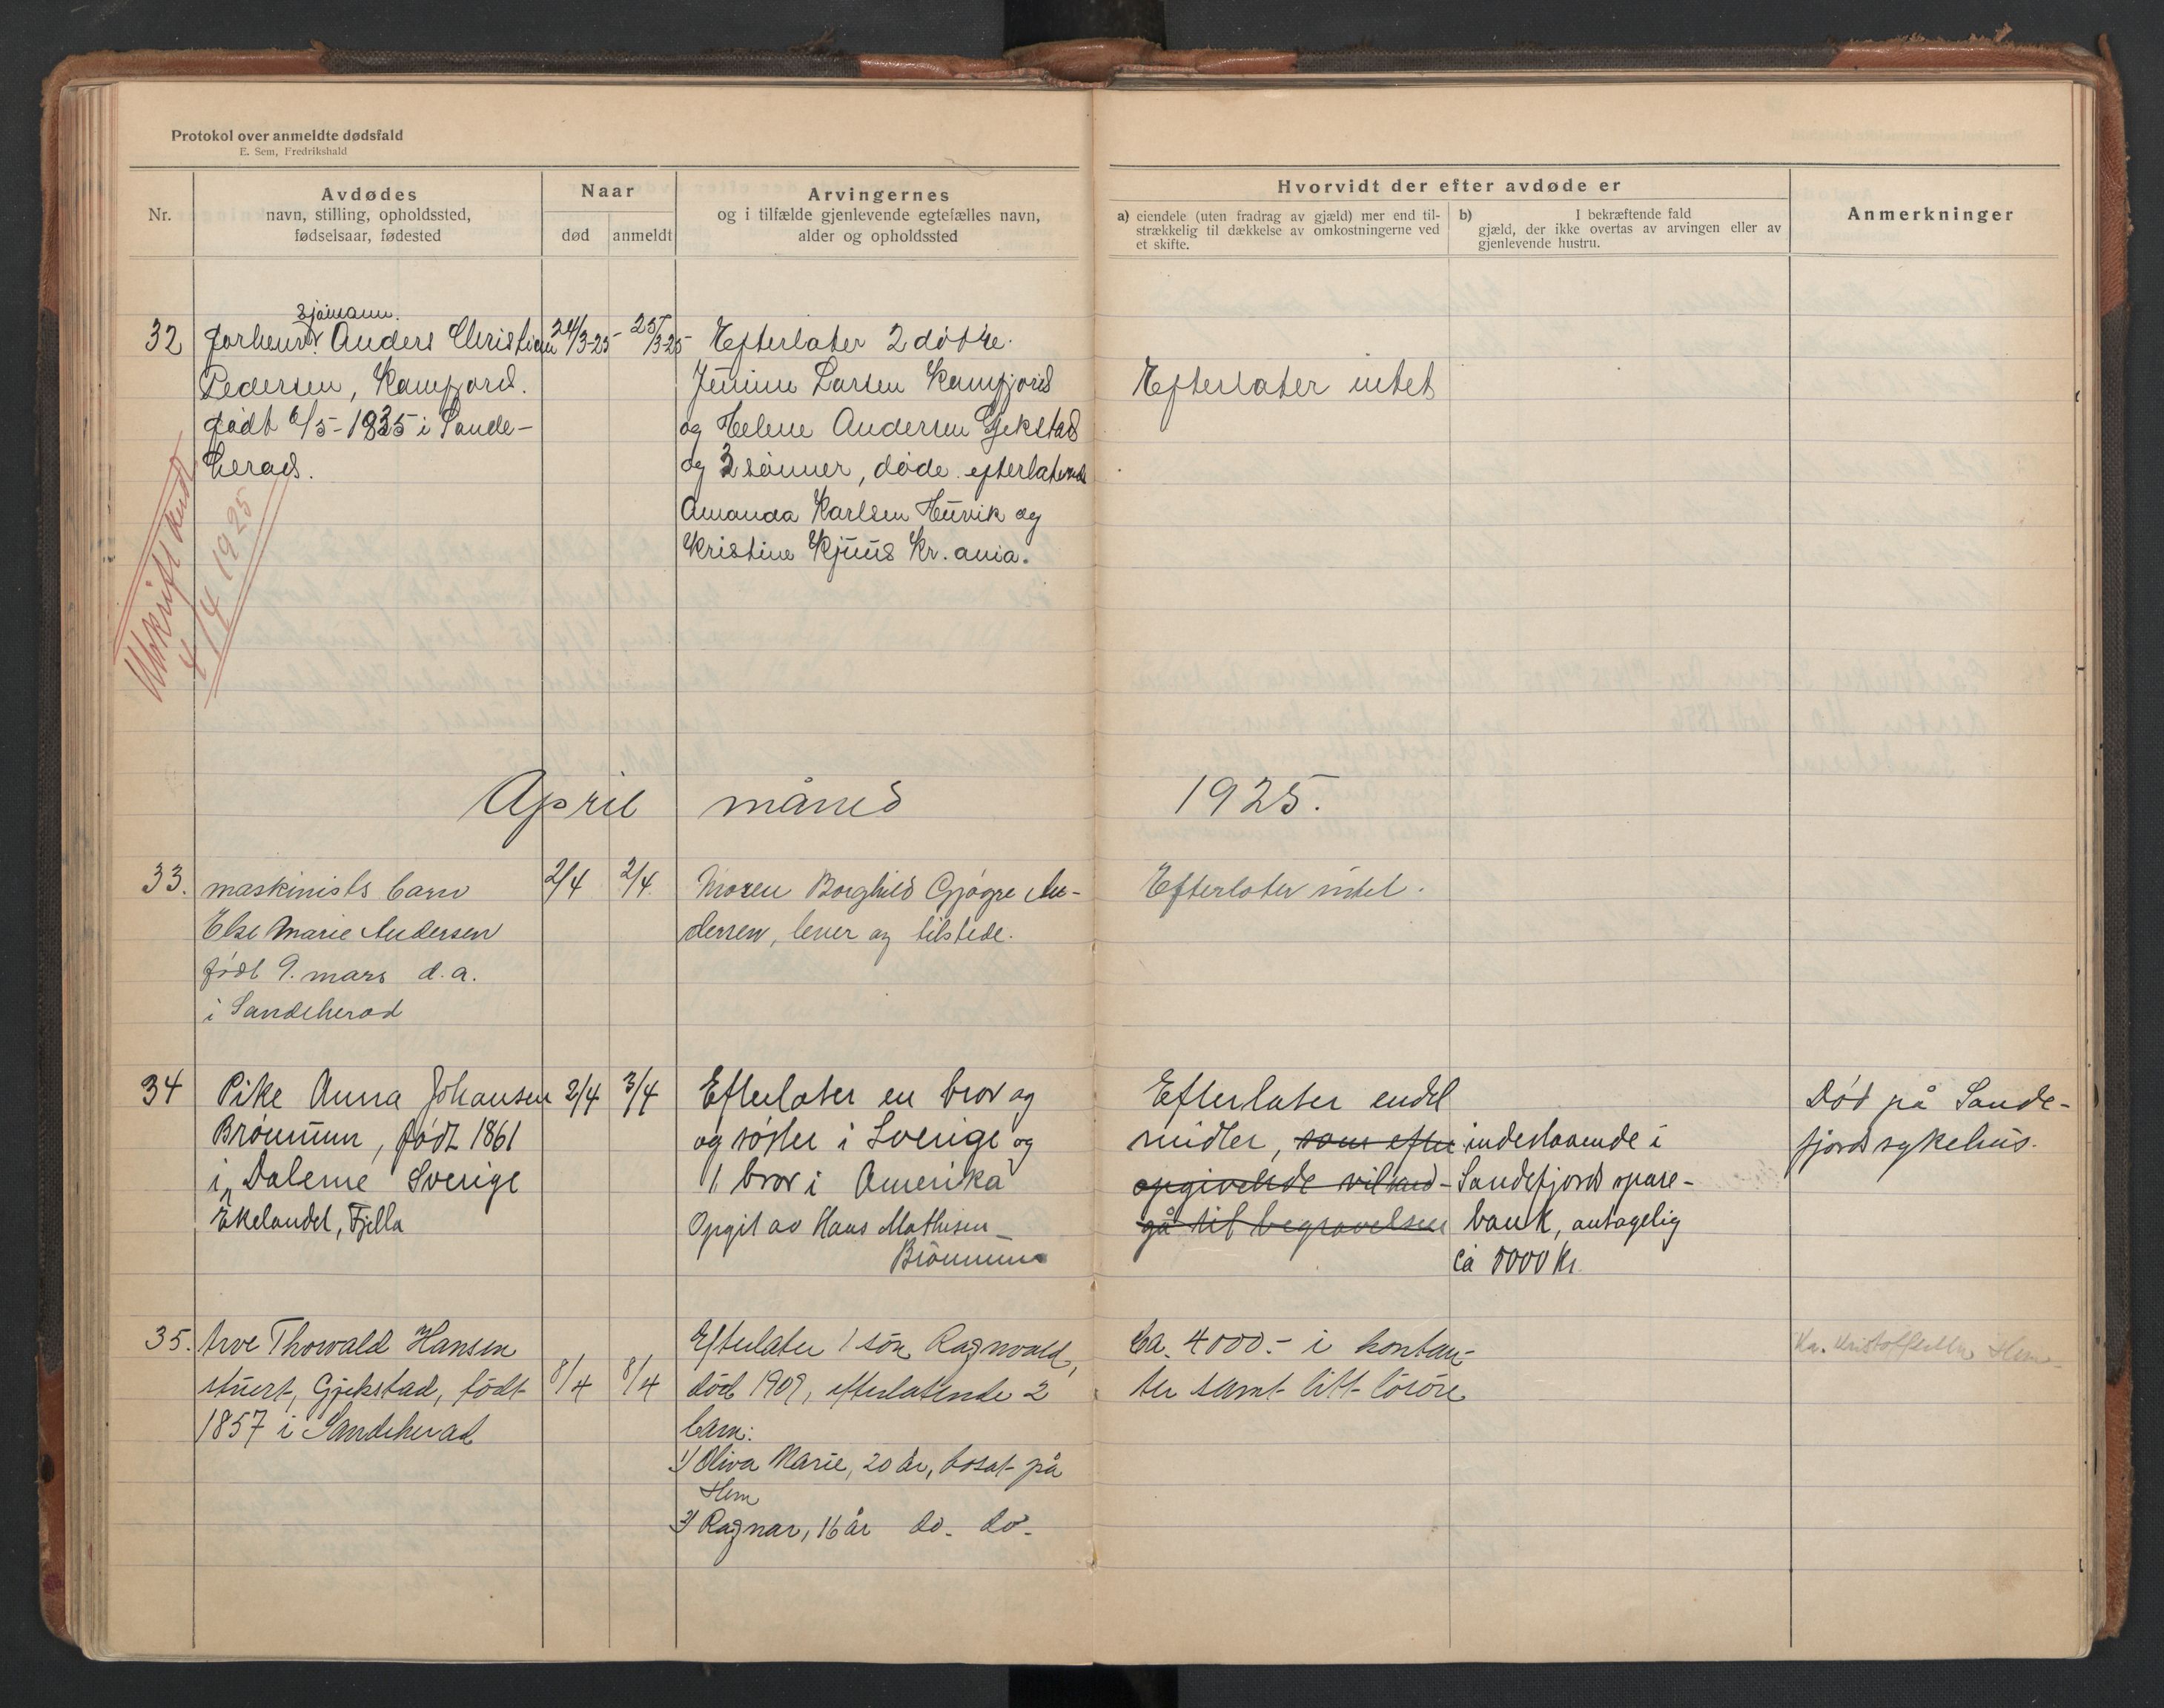 Protokol over anmeldte dødsfald
E. Sem, Fredrikshald
Nr.
Avdødes
navn, stilling, opholdssted,
fødselsaar, fødested
Naar
død
anmeldt
Arvingernes
og i tilfælde gjenlevende egtefælles navn,
alder og opholdssted
Hvorvidt der efter avdøde er
a) eiendele (uten fradrag av gjæld) mer end til-
strækkelig til dækkelse av omkostningerne ved
et skifte.
b) I bekræftende fald
gjæld, der ikke overtas av arvingen eller av
gjenlevende hustru.
Anmerkninger
32
sjømann.
forhenv. Anders Christian
Pedersen, Kamfjord.
født 6/5-1835 i Sande-
herad.
24/3-25
25/3-25
Efterlater 2 døtre.
Larsen Kamfjord
og Helene Andersen Gjekstad
og 3 sønner, døde efterlatende
Amanda Karlsen Huvik og
Kristine Kjuus Kr.ania.
Efterlater intet
Utskrift sendt
4/4 1925
April måned 1925.
33.
maskinists barn
Else Marie Andersen
født 9. mars d.a.
i Sandeherad
2/4
2/4.
Moren Borghild Gjøgre An-
dersen, lever og tilstede.
Efterlater intet.
34
Pike Anna Johansen
Brønnum, født 1861
i Dalerne Sverige
Ekelandet, Fjella
2/4
3/4
Efterlater en bror og
og søster i Sverige og
1 bror i Amerika
Opgit av Hans Mathisen
Brønnum
Efterlater endel
midler, som efter
opgivende vil med-
gå til begravelsen
indestaaende i
Sandefjords spare-
bank, antagelig
ca 5000 kr.
Død på Sande-
fjord sykehus.
35.
Arve Thorvald Hansen
stuert, Gjekstad, født
1857 i Sandeherad
8/4
8/4
Efterlater 1 søn Ragnvald,
død 1909, efterlatende 2
barn:
1) Oliva Marie, 20 år, bosat på
Hem
2) Ragnar, 16 år do. do.
Ca. 4000.- i kontan-
ter samt litt løsøre
Hem